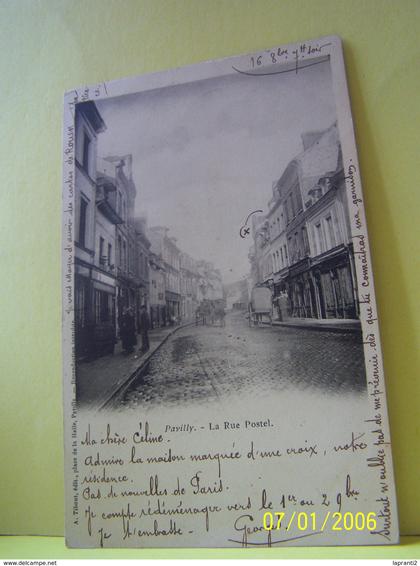 16 8bre ... soir
Je vais tâcher d'avoir des cartes de Rouen
A. Tihout, édit., place de la Halle, Pavilly. — Reproduction interdite.
Pavilly. - La Rue Postel.
Ma chère Céline.
Admire la maison marquée d'une croix, notre
résidence.
Pas de nouvelles de Paris.
Je compte rédéménager vers le 1er ou 2 9bre
Je t'embrasse. Georges
Surtout n'oublie pas de me prévenir dès que tu connaîtras ma garnison.
07/01/2006
www.lapranti2.com